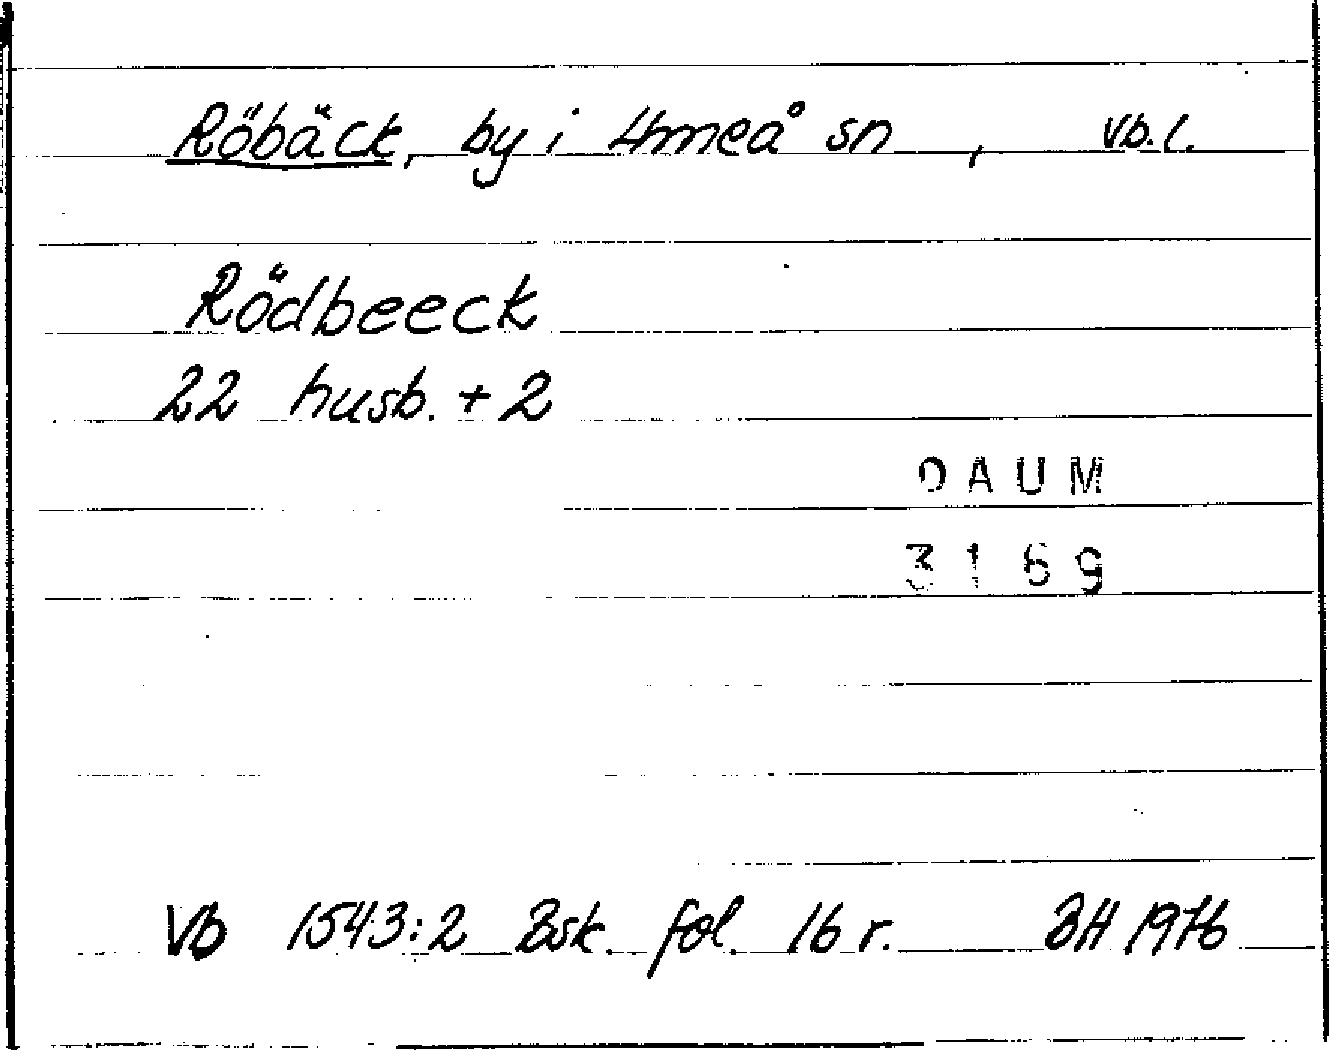 Röbäck, by i Umeå sn, Vb.l.
Rödbeeck
22 husb. + 2
DAUM
3169
Vb 1543:2 Bsk. fol. 16 r. BH 1976